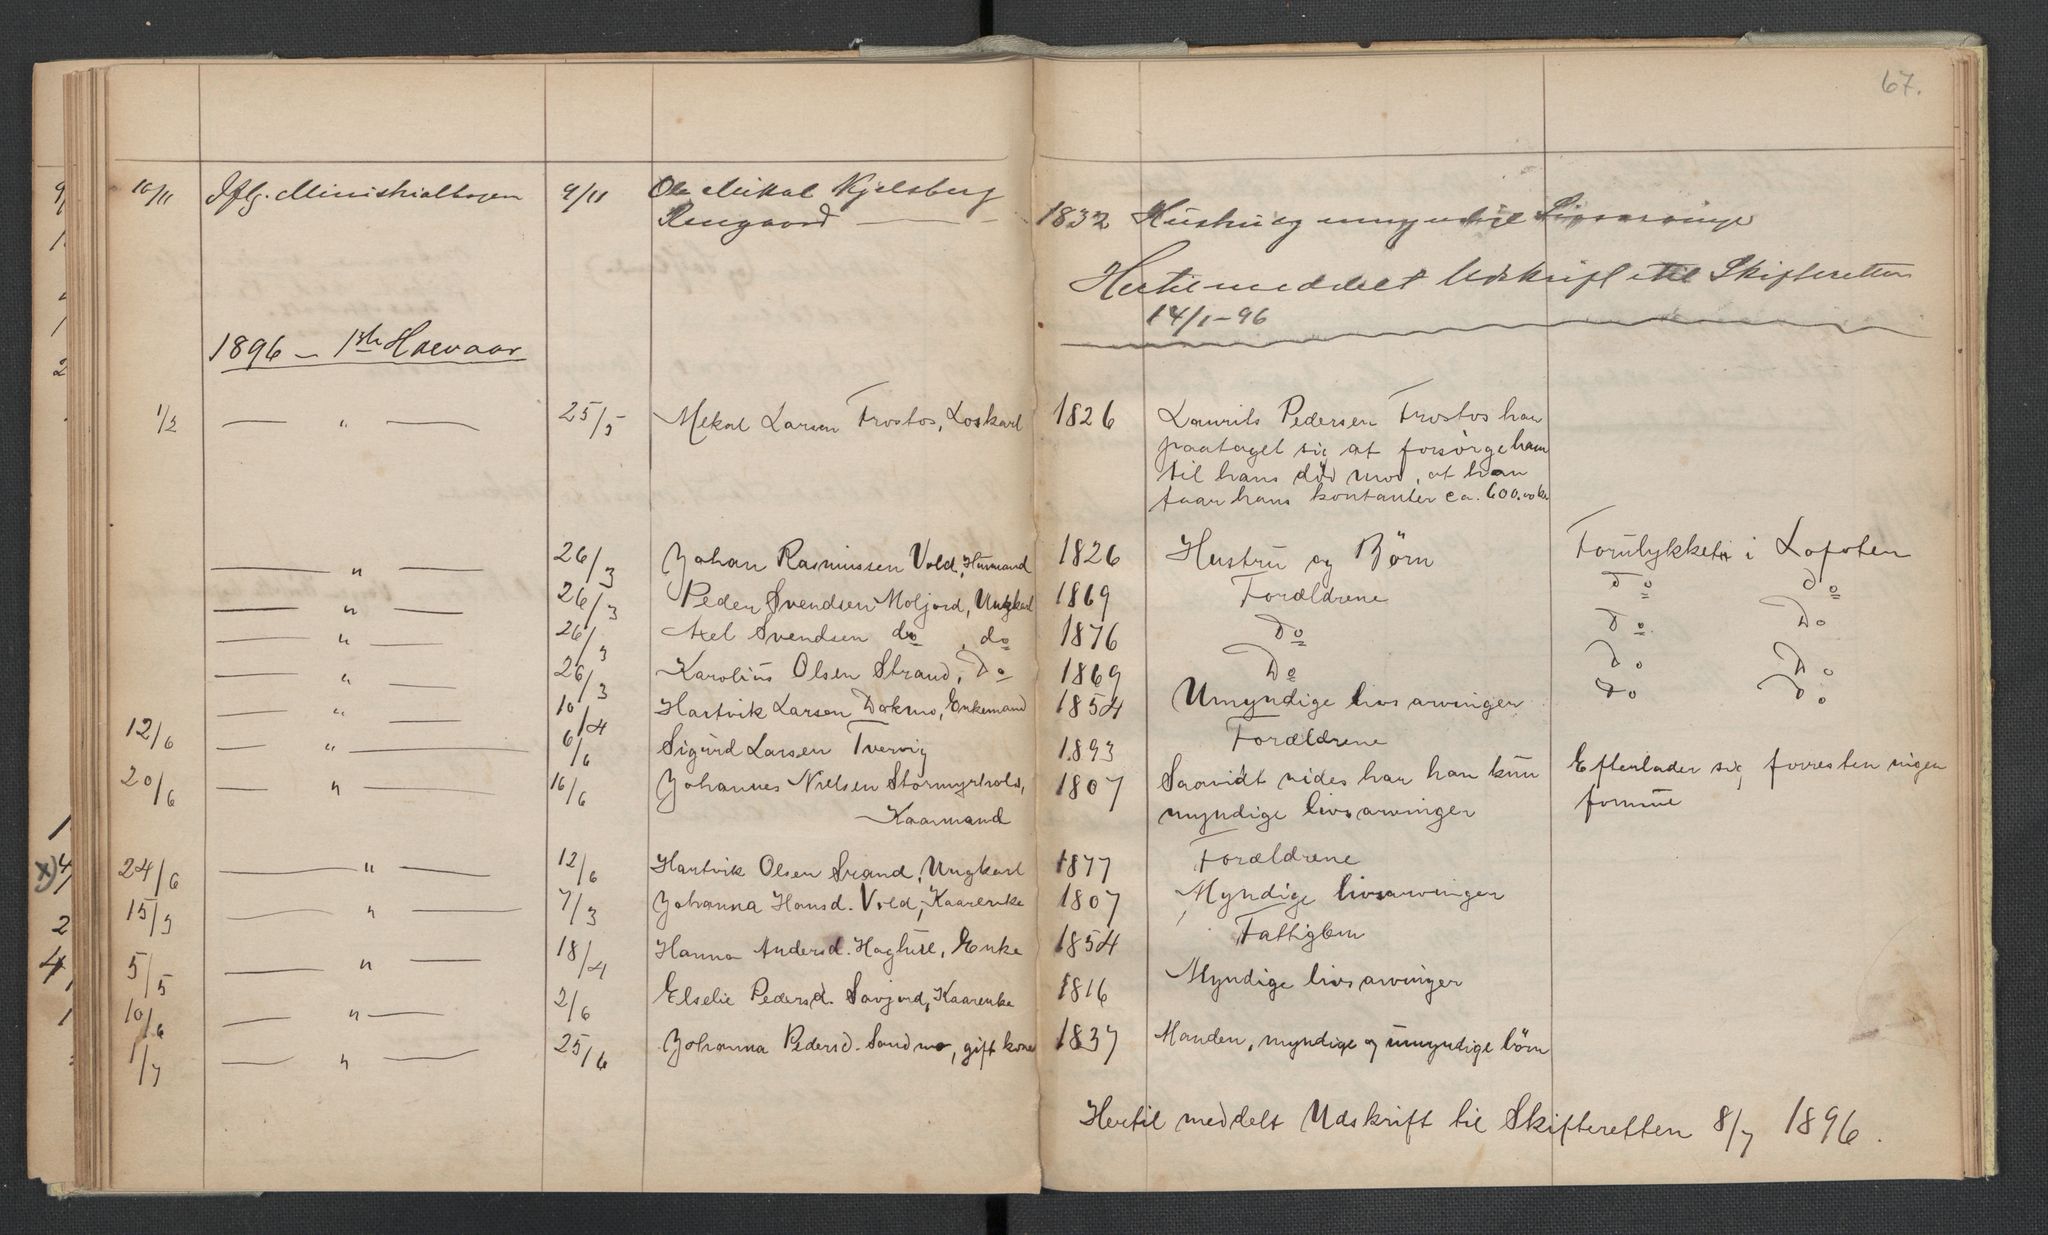 67.
10/11 Iflg. Ministrialbogen 9/11 Ole Mikal Kjelsberg
Rengaard 1832 Hustru og umyndige Livsarvinge
Hertil meddelt Udskrift til Skifteretten
14/1-96
1896 - 1ste Halvaar
1/2 — " — 25/5 Mekal Larsen Trostos, Loskarl 1826 Laurits Pedersen Trostos har
paataget sig at forsørge ham
til hans død mod, at han
faar hans kontanter ca. 600.00 kr
— " — 26/3 Johan Rasmussen Vold, Husmand 1826 Hustru og Børn Forulykket i Lofoten
— " — 26/3 Peder Svendsen Moljord, Ungkarl 1869 Forældrene Do Do
— " — 26/3 Axel Svendsen do, do 1876 Do Do Do
— " — 26/3 Karolius Olsen Strand, Do 1869 Do Do Do
— " — 10/4 Hartvik Larsen Dokmo, Enkemand 1854 Umyndige livsarvinger Do Do
12/6 — " — 6/6 Sigurd Larsen Tvervig 1893 Forældrene
20/6 — " — 16/6 Johannes Nielsen Stormyrhols, 1807 Saavidt vides har han kun Efterlader sig forresten ingen
Kaarmand myndige livsarvinger formue
24/6 — " — 12/6 Hartvik Olsen Strand, Ungkarl 1877 Forældrene
15/3 — " — 7/3 Johanna Hansd. Vold, Kaarenke 1807 Myndige livsarvinger
5/5 — " — 18/4 Hanna Andersd. Enke 1854 Fattiglem
10/6 — " — 2/6 Elselie Pedersd. Savjord, Kaarenke 1816 Myndige livsarvinger
1/7 — " — 25/6 Johanna Pedersd. Sandmo, gift kone 1837 Manden, myndige og umyndige børn
Hertil meddelt Udskrift til Skifteretten 8/7 1896.